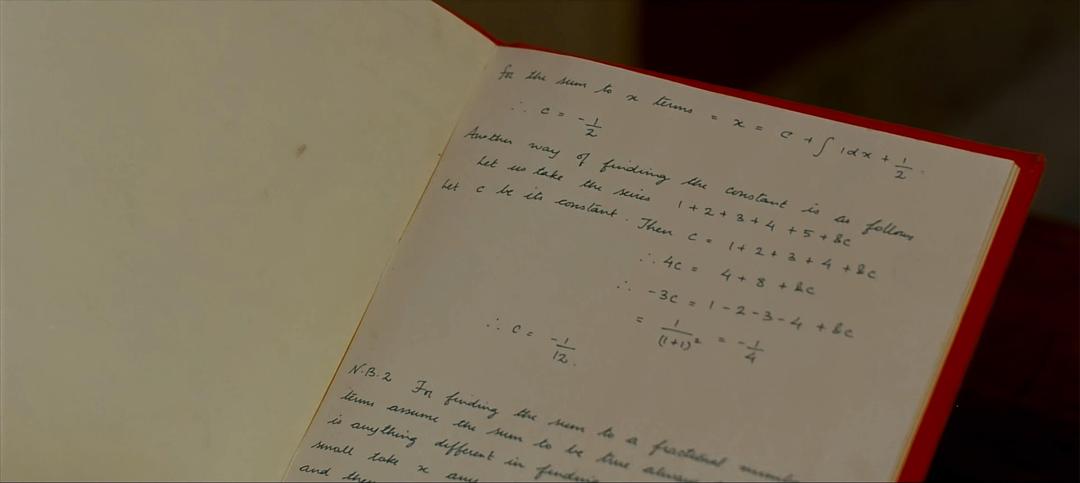 for the sum to x terms = x = c + ∫ 1dx + 1/2.
∴ c = -1/2
Another way of finding the constant is as follows
Let us take the seires 1 + 2 + 3 + 4 + 5 + &c
Let c be its constant. Then c = 1 + 2 + 3 + 4 + &c
∴ 4c = 4 + 8 + &c
∴ -3c = 1 - 2 - 3 - 4 + &c
= 1/(1+1)² = -1/4
∴ c = -1/12.
N.B.2 For finding the sum to a fractional
terms assume the sum to be true always
is anything different in
small take x any
and